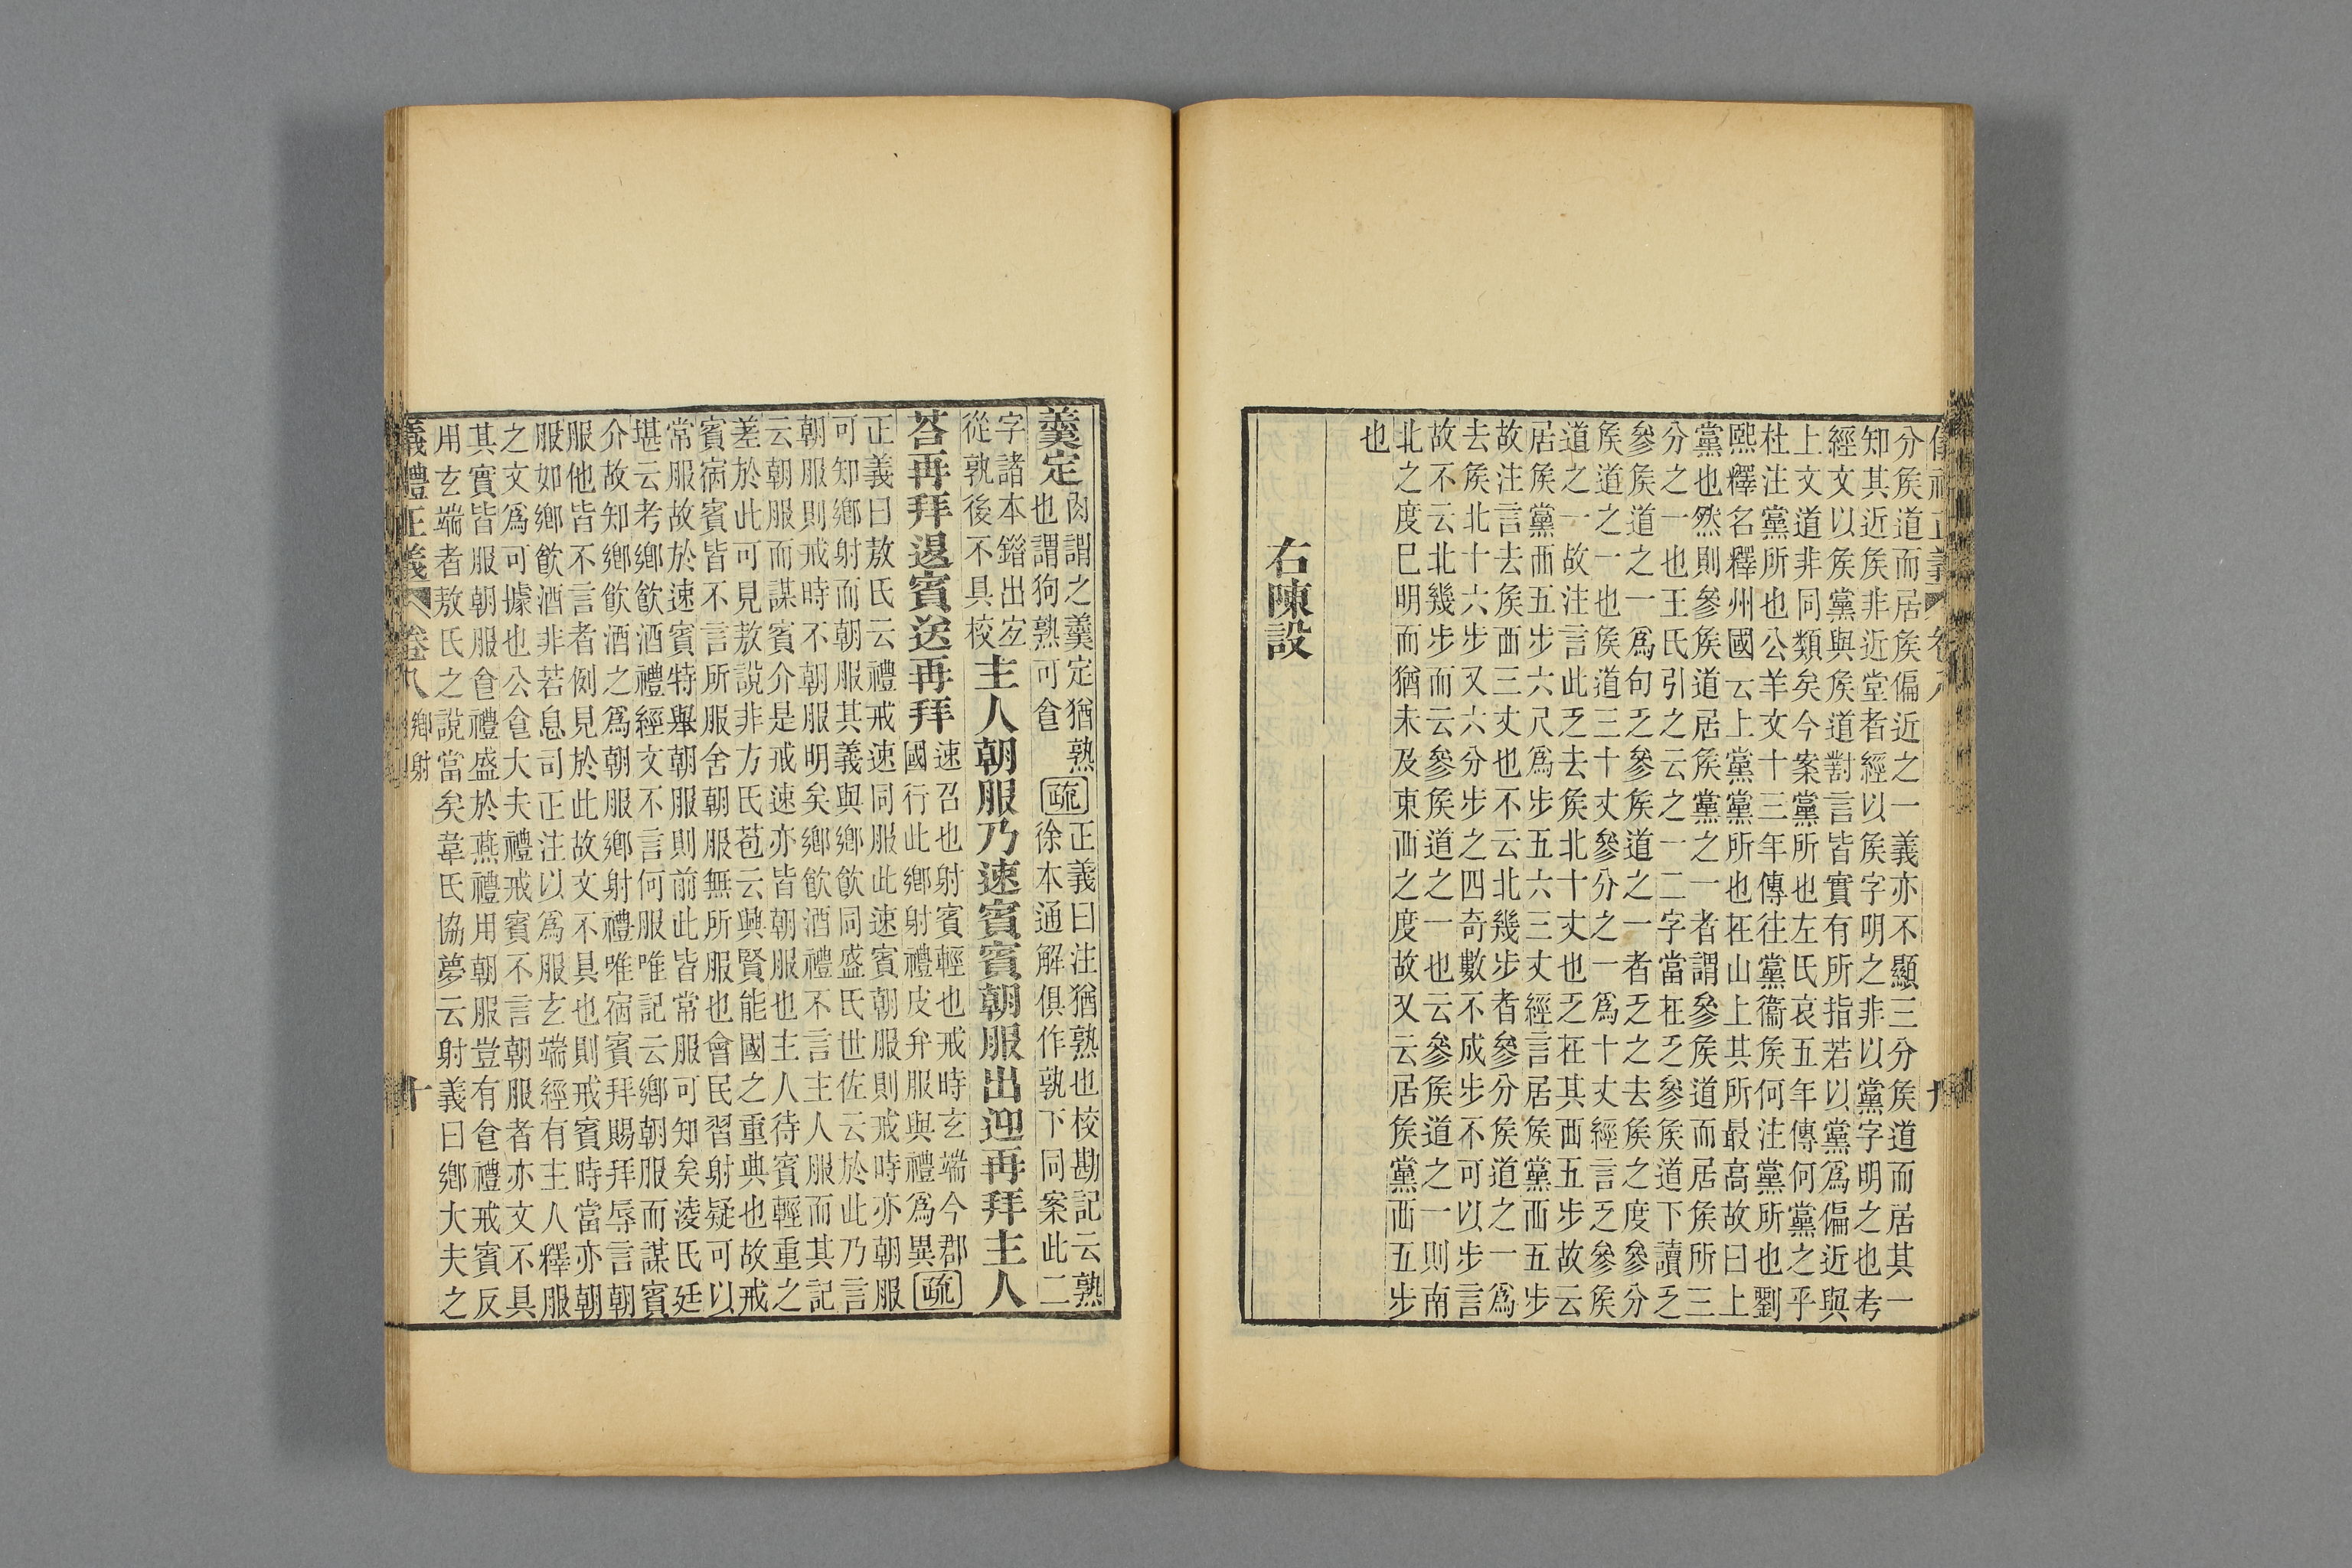 儀禮正義 卷八 九
分矦道而居矦偏近之一義亦不顯三分矦道而居其一
知其近矦非近堂者經以矦字明之非以黨字明之也考
經文以矦黨與矦道對言皆實有所指若以黨爲偏近與
上文道非同類矣今案黨所也左氏哀五年傳何黨之乎
杜注黨所也公羊文十三年傳往黨衞矦何注黨所也劉
熙釋名釋州國云上黨黨所也在山上其所最高故曰上
黨也然則參矦道居矦黨之一者謂參矦道而居矦所三
分之一也王氏引之云之一二字當在乏參矦道下讀乏
參矦道之一爲句乏參矦道之一者乏之去矦之度參分
矦道之一也矦道三十丈參分之一爲十丈經言乏參矦
道之一故注言此乏去矦北十丈也乏在其西五步故云
居矦黨西五步六尺爲步五六三丈經言居矦黨西五步
故注言去矦西三丈也不云北幾步者參分矦道之一爲
去矦北十六步又六分步之四奇數不成步不可以步言
故不云北幾步而云參矦道之一也云參矦道之一則南
北之度巳明而猶未及東西之度故又云居矦黨西五步
也
右陳設
羹定 肉謂之羹定猶熟也謂狗熟可食 疏 正義曰注猶熟也校勘記云熟徐本通解俱作孰下同案此二
字諸本錯出宜從孰後不具校 主人朝服乃速賓賓朝服出迎再拜主人
荅再拜退賓送再拜 速召也射賓輕也戒時玄端今郡國行此鄉射禮皮弁服與禮爲異 疏
正義曰敖氏云禮戒速同服此速賓朝服則戒時亦朝服
可知鄉射而朝服其義與鄉飮同盛氏世佐云於此乃言
朝服則戒時不朝服明矣鄉飮酒禮不言主人服而其記
云朝服而謀賓介是戒速亦皆朝服也主人待賓輕重之
差於此可見敖說非方氏苞云興賢能國之重典也故戒
賓宿賓皆不言所服舍朝服無所服也會民習射疑可以
常服故於速賓特舉朝服則前此皆常服可知矣淩氏廷
堪云考鄉飮酒禮經文不言何服唯記云鄉朝服而謀賓
介故知鄉飮酒之爲朝服鄉射禮唯宿賓拜賜拜辱言朝
服他皆不言者例見於此故文不具也則戒賓時當亦朝
服如鄉飮酒非若息司正注以爲服玄端經有主人釋服
之文爲可據也公食大夫禮戒賓不言朝服者亦文不具
其實皆服朝服食禮盛於燕禮用朝服豈有食禮戒賓反
用玄端者敖氏之說當矣韋氏協夢云射義曰鄉大夫之
儀禮正義 卷八 鄉射 十